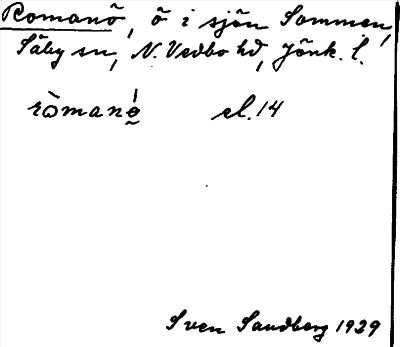 Romanö, ö i sjön Sommen,
Säby sn, N. Vedbo hd, Jönk. l.
ròmanǿ̰ el. 14
Sven Sandberg 1929